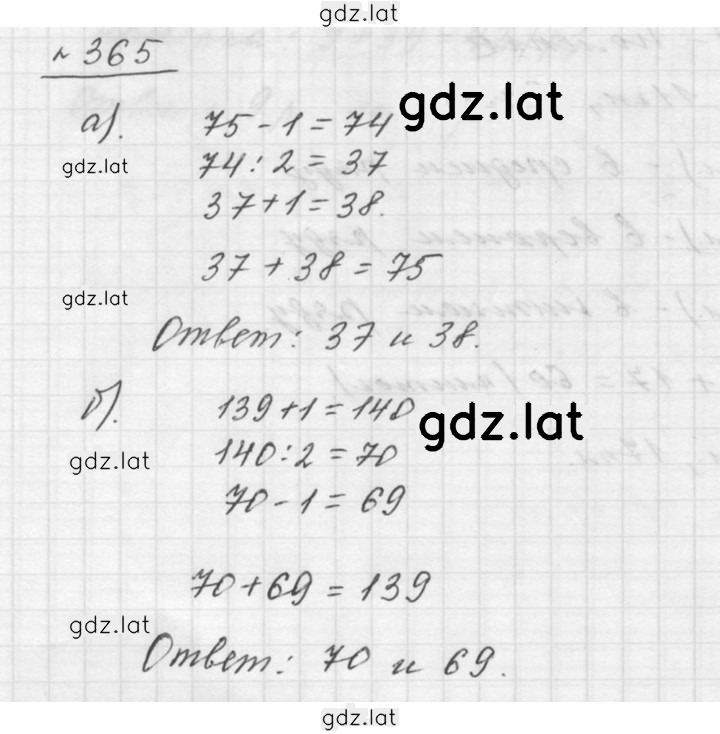 gdz.lat
№ 365
а). 75 - 1 = 74 gdz.lat
gdz.lat 74 : 2 = 37
37 + 1 = 38.
37 + 38 = 75
gdz.lat
Ответ: 37 и 38.
б). 139 + 1 = 140 gdz.lat
gdz.lat 140 : 2 = 70
70 - 1 = 69
70 + 69 = 139
gdz.lat
Ответ: 70 и 69.
gdz.lat